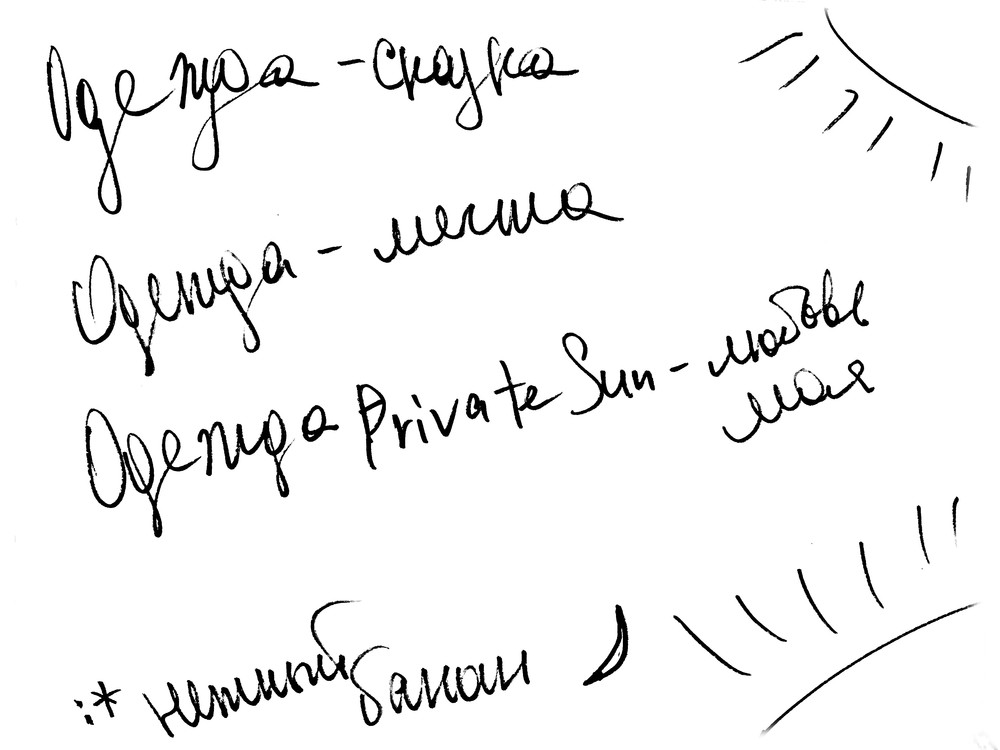 Одежда - сказка
Одежда - мечта
Одежда Private Sun - любовь
моя
:* нежный банан